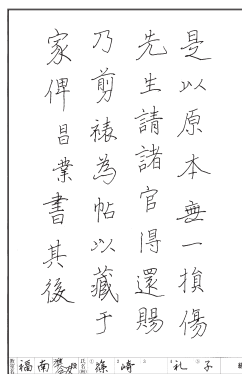 是以原本無一損傷
先生請諸官得還賜
乃剪裱為帖以藏于
家俾昌業書其後
福南 篠崎礼子